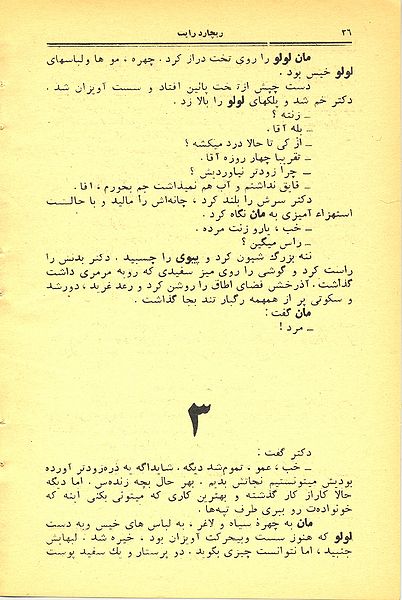 ۳۶
ریچارد رایت
مان لولو را روی تخت دراز کرد. چهره، مو ها ولباسهای
لولو خیس بود.
دست چپش ازتخت پائین افتاد و سست آویزان شد.
دکتر خم شد و پلکهای لولو را بالا زد.
ــ زنته؟
ــ بله آقا.
ــ از کی تا حالا درد میکشه؟
ــ تقریباً چهار روزه آقا.
ــ چرا زودتر نیاوردیش؟
ــ قایق نداشتم و آب هم نمیذاشت جم بخورم، آقا.
دکتر سرش را بلند کرد، چانه‌اش را مالید و با حالت
استهزاء آمیزی به مان نگاه کرد.
ــ خب، یارو زنت مرده.
ــ راس میگین؟
ننه بزرگ شیون کرد و پیوی را چسبید. دکتر بدنش را
راست کرد و گوشی را روی میز سفیدی که رویه مرمری داشت
گذاشت. آذرخش فضای اطاق را روشن کرد و رعد غرید، دورشد
و سکوتی پر از همهمه رگبار تند بجا گذاشت.
مان گفت:
ــ مرد!
۳
دکتر گفت:
ــ خب، عمو، تموم‌شد دیگه. شایداگه یه ذره‌زودتر آورده
بودیش میتونستیم نجاتش بدیم. بهر حال بچه زنده‌س. اما دیگه
حالا کاراز کار گذشته و بهترین کاری که میتونی بکنی اینه که
خونواده‌ت رو ببری طرف تپه‌ها.
مان به چهرهٔ سیاه و لاغر، به لباس های خیس وبه دست
لولو که هنوز سست وبیحرکت آویزان بود، خیره شد. لبهایش
جنبید، اما نتوانست چیزی بگوید. دو پرستار و یك سفید پوست